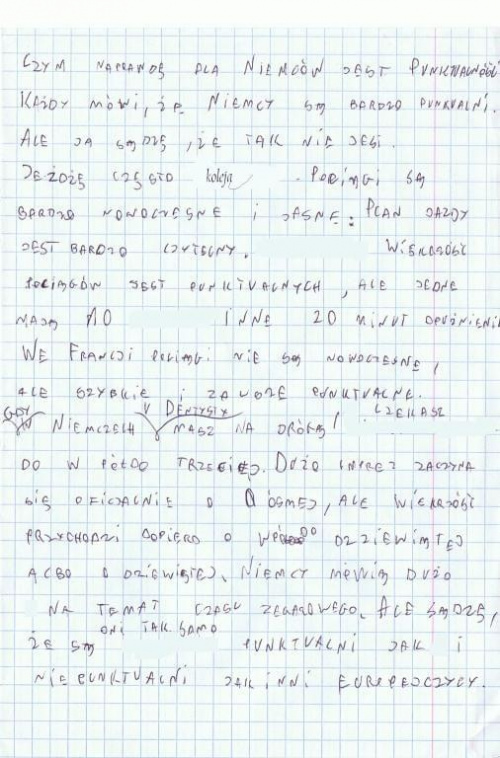 CZYM NAPRAWDĘ DLA NIEMCÓW JEST PUNKTUALNOŚĆ
KAŻDY MÓWI, ŻE NIEMCY SĄ BARDZO PUNKUALNI.
ALE JA SĄDZĘ, ŻE TAK NIE JEST.
JEŻDŻĘ CZĘSTO koleją. POCIĄGI SĄ
BARDZO NOWOCZESNE I JASNE. PLAN JAZDY
JEST BARDZO CZYTELNY. WIĘKSZOŚĆ
POCIĄGÓW JEST PUNKTUALNYCH, ALE JEDNE
MAJĄ 10 INNE 20 MINUT OPUŹNIENIA
WE FRANCJI POCIĄGI NIE SĄ NOWOCZESNE,
ALE SZYBKIE I ZAWSZE PUNKTUALNE.
GDY W NIEMCZECH U DENTYSTY MASZ NA DRÓGĄ, CZEKASZ
DO W PÓŁDO TRZECIEJ. DUŻO IMPREZ ZACZYNA
SIĘ OFICJALNIE O ÓSMEJ, ALE WIĘKSZOŚĆ
PRZYCHODZI DOPIERO O WPÓŁ DO DZIEWIĄTEJ
ALBO O DZIEWIĄTEJ. NIEMCY MÓWIĄ DUŻO
NA TEMAT CZASU ZEGAROWEGO. ALE SĄDZĘ,
ŻE SĄ ONI TAK SAMO PUNKTUALNI JAK I
NIEPUNKTUALNI JAK INNI EUROPEJCZYCY.